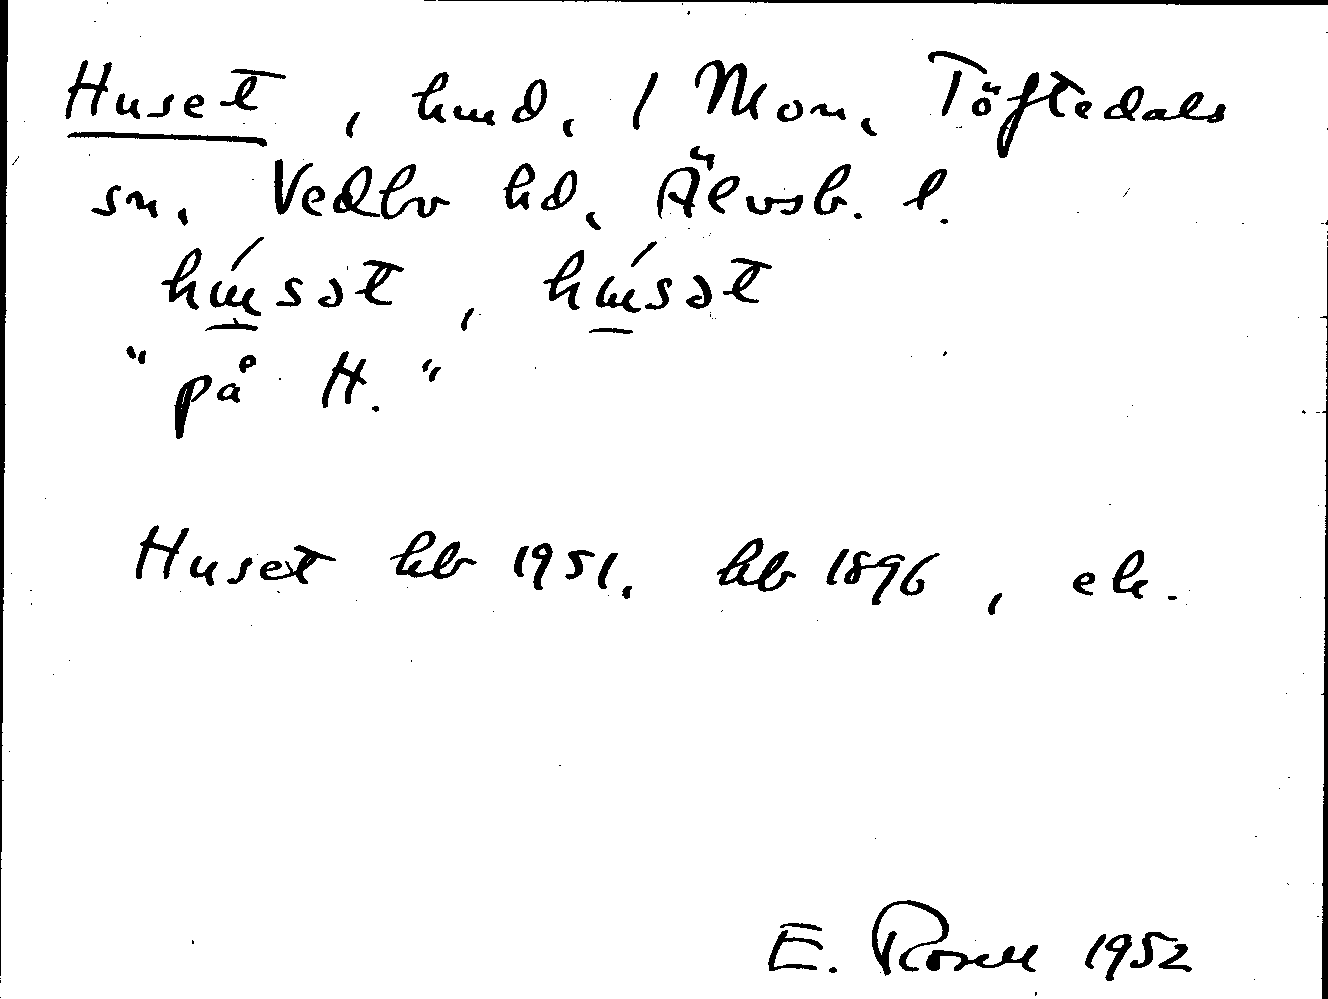 Huset, hmd. 1 Mon. Töftedals
sn. Vedbo hd. Älvsb. l.
hú̱sət, hú̱sət
"på H."
Huset kb 1951. kb 1896, ek.
E. Rosell 1952